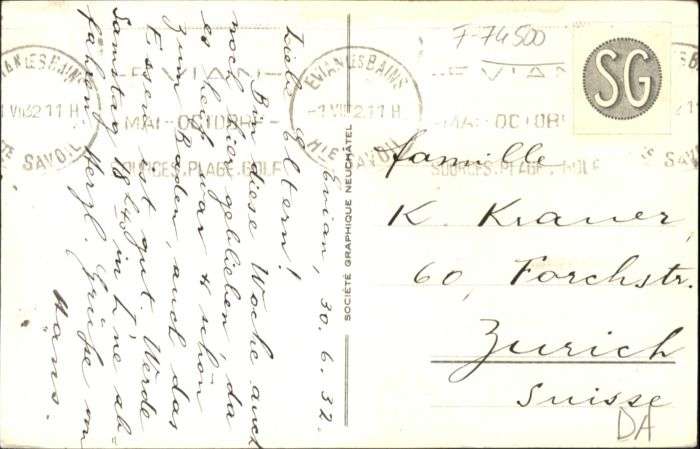 Evian, 30. 6. 32.
Liebe Eltern!
Bin diese Woche auch
noch hier geblieben, da
es heiß war & schön
zum Baden, auch das
Essen ist gut. Werde
Samstag 18 40 in L'ne ab-
fahren. Herzl. Grüße von
Hans.
SOCIÉTÉ GRAPHIQUE NEUCHÂTEL
F-74500
SG
EVIAN LES BAINS
-1 VII 32 11 H
HTE SAVOIE
EVIAN
MAI-OCTOBRE
SOURCES.PLAGE.GOLF
EVIAN LES BAINS
1 VII 32 11 H
HTE SAVOIE
EVIAN
MAI-OCTOBRE
SOURCES.PLAGE.GOLF
famille
K. Kramer,
60, Forchstr.
Zurich
Suisse
DA